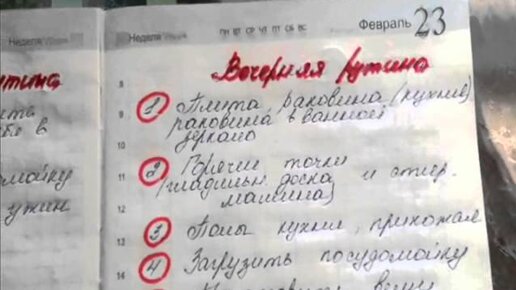 Неделя
тина
ита
бе в
мойку
ужин
Неделя ПН ВТ СР ЧТ ПТ СБ ВС Февраль 23
Вечерняя рутина
8
1 Плита, раковина (кухня)
9
раковина в ванной
10 зеркало
2 Горячие точки
11 (гладильн. доска и стир.
12 машина)
13 3 Полы кухня, прихожая
14 4 Загрузить посудомойку
вещи